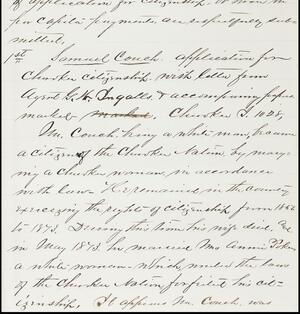 of application for citizenship, or more in
per capita payments, are respectfully sub-
mitted.
1st Samuel Couch. application for
Cherokee citizenship. with letter from
Agent G. W. Ingalls. & accompanying papers
marked Cherokee I. 1028.
Mr. Couch being a white man, became
a citizen of the Cherokee Nation by marry-
ing a Cherokee woman, in accordance
with law. He remained in the country
exercising the rights of citizenship from
to 1873. During this time his wife died. And
in May 1873. he married Mrs Annie
a white woman. which under the laws
of the Cherokee Nation forfeited his cit-
izenship. It appears Mr. Couch, was